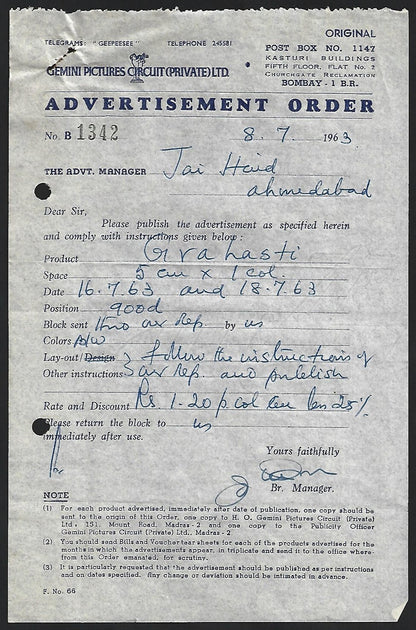 ORIGINAL
TELEGRAMS: "GEEPEESEE" TELEPHONE 245581
POST BOX NO. 1147
KASTURI BUILDINGS
FIFTH FLOOR, FLAT No. 2
CHURCHGATE RECLAMATION
BOMBAY - 1 B.R.
GEMINI PICTURES CIRCUIT (PRIVATE) LTD.
ADVERTISEMENT ORDER
No. B 1342 8.7 1963
THE ADVT. MANAGER Jai Hind
Ahmedabad
Dear Sir,
Please publish the advertisement as specified herein
and comply with instructions given below :
Product Grahasti
Space 5 cm x 1 col.
Date 16.7.63 and 18.7.63
Position good
Block sent thro our rep by us
Colors B/W
Lay-out/Design } follow the instructions of
Other instructions } our rep. and publish
Rate and Discount Rs 1.20 p col cm less 25%
Please return the block to us
immediately after use.
Yours faithfully
Br. Manager.
NOTE
(1) For each product advertised, immediately after date of publication, one copy should be
sent to the origin of this Order, one copy to H. O. Gemini Pictures Circuit (Private)
Ltd., 151, Mount Road, Madras - 2 and one copy to the Publicity Officer
Gemini Pictures Circuit (Private) Ltd., Madras - 2
(2) You should send Bills and Voucher tear sheets for each of the products advertised for the
months in which the advertisements appear, in triplicate and send it to the office where-
from this Order emanated, for scrutiny.
(3) It is particularly requested that the advertisement should be published as per instructions
and on dates specified. Any change or deviation should be intimated in advance.
F. No. 66